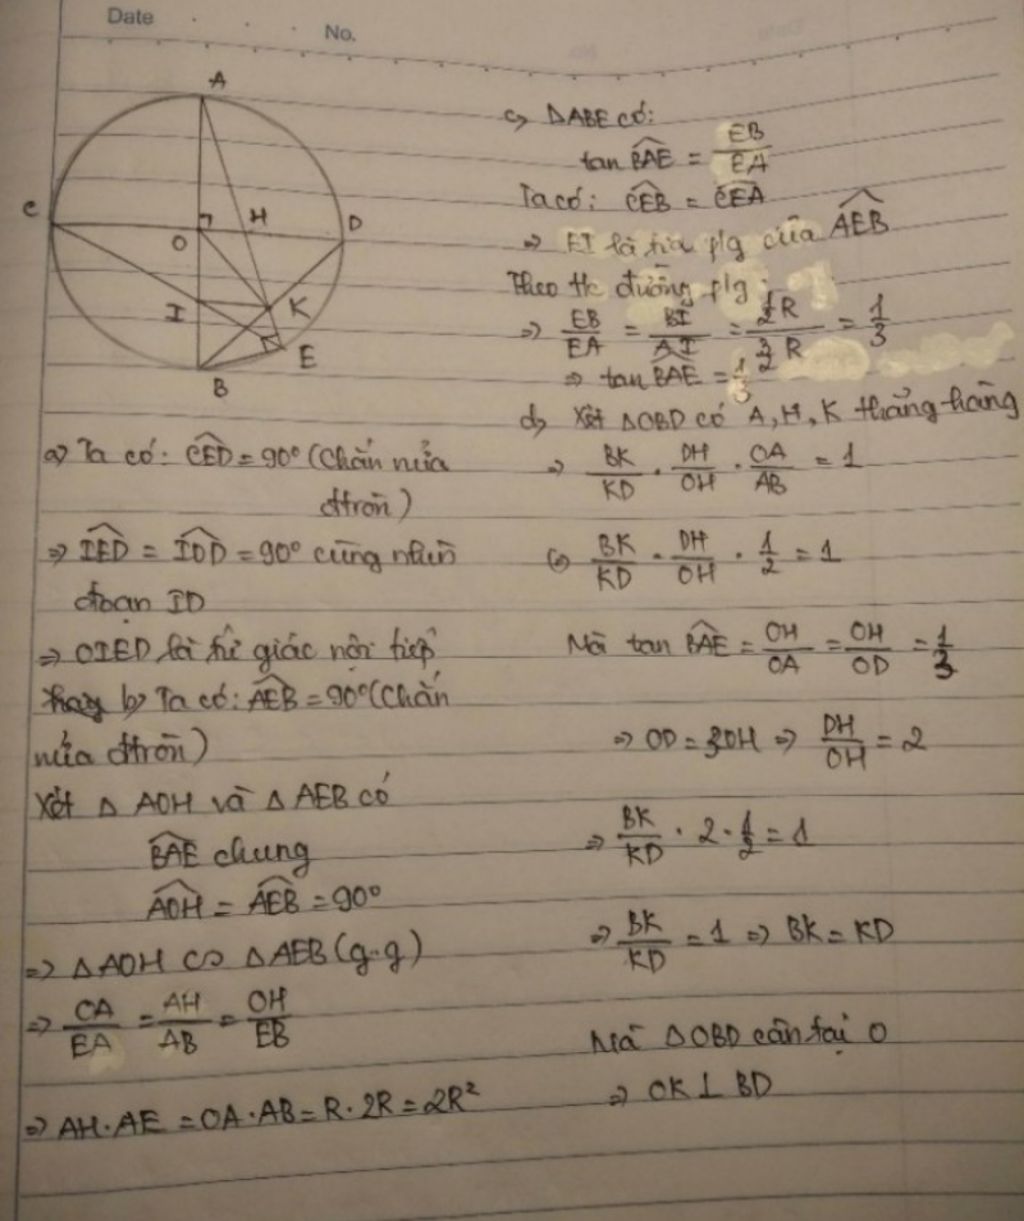 Date
No.
A
C
O
H
D
I
K
E
B
a) Ta có: CED = 90° (chắn nửa
đtròn)
=> IED = IOD = 90° cùng nhìn
đoạn ID
=> OIED là tứ giác nội tiếp
b) Ta có: AEB = 90° (chắn
nửa đtròn)
Xét Δ AOH và Δ AEB có
BAE chung
AOH = AEB = 90°
=> Δ AOH ∽ Δ AEB (g.g)
=> OA/EA = AH/AB = OH/EB
=> AH.AE = OA.AB = R.2R = 2R²
c, ΔABE có:
tan BAE = EB/EA
Ta có: CEB = CEA
=> EI là tia p/g của AEB
Theo tc đường p/g:
=> EB/EA = BI/AI = 1/2 R / 3/2 R = 1/3
=> tan BAE = 1/3
d, Xét ΔOBD có A, H, K thẳng hàng
=> BK/KD . DH/OH . OA/AB = 1
<=> BK/KD . DH/OH . 1/2 = 1
Mà tan BAE = OH/OA = OH/OD = 1/3
=> OD = 3OH => DH/OH = 2
=> BK/KD . 2 . 1/2 = 1
=> BK/KD = 1 => BK = KD
Mà ΔOBD cân tại O
=> OK ⊥ BD